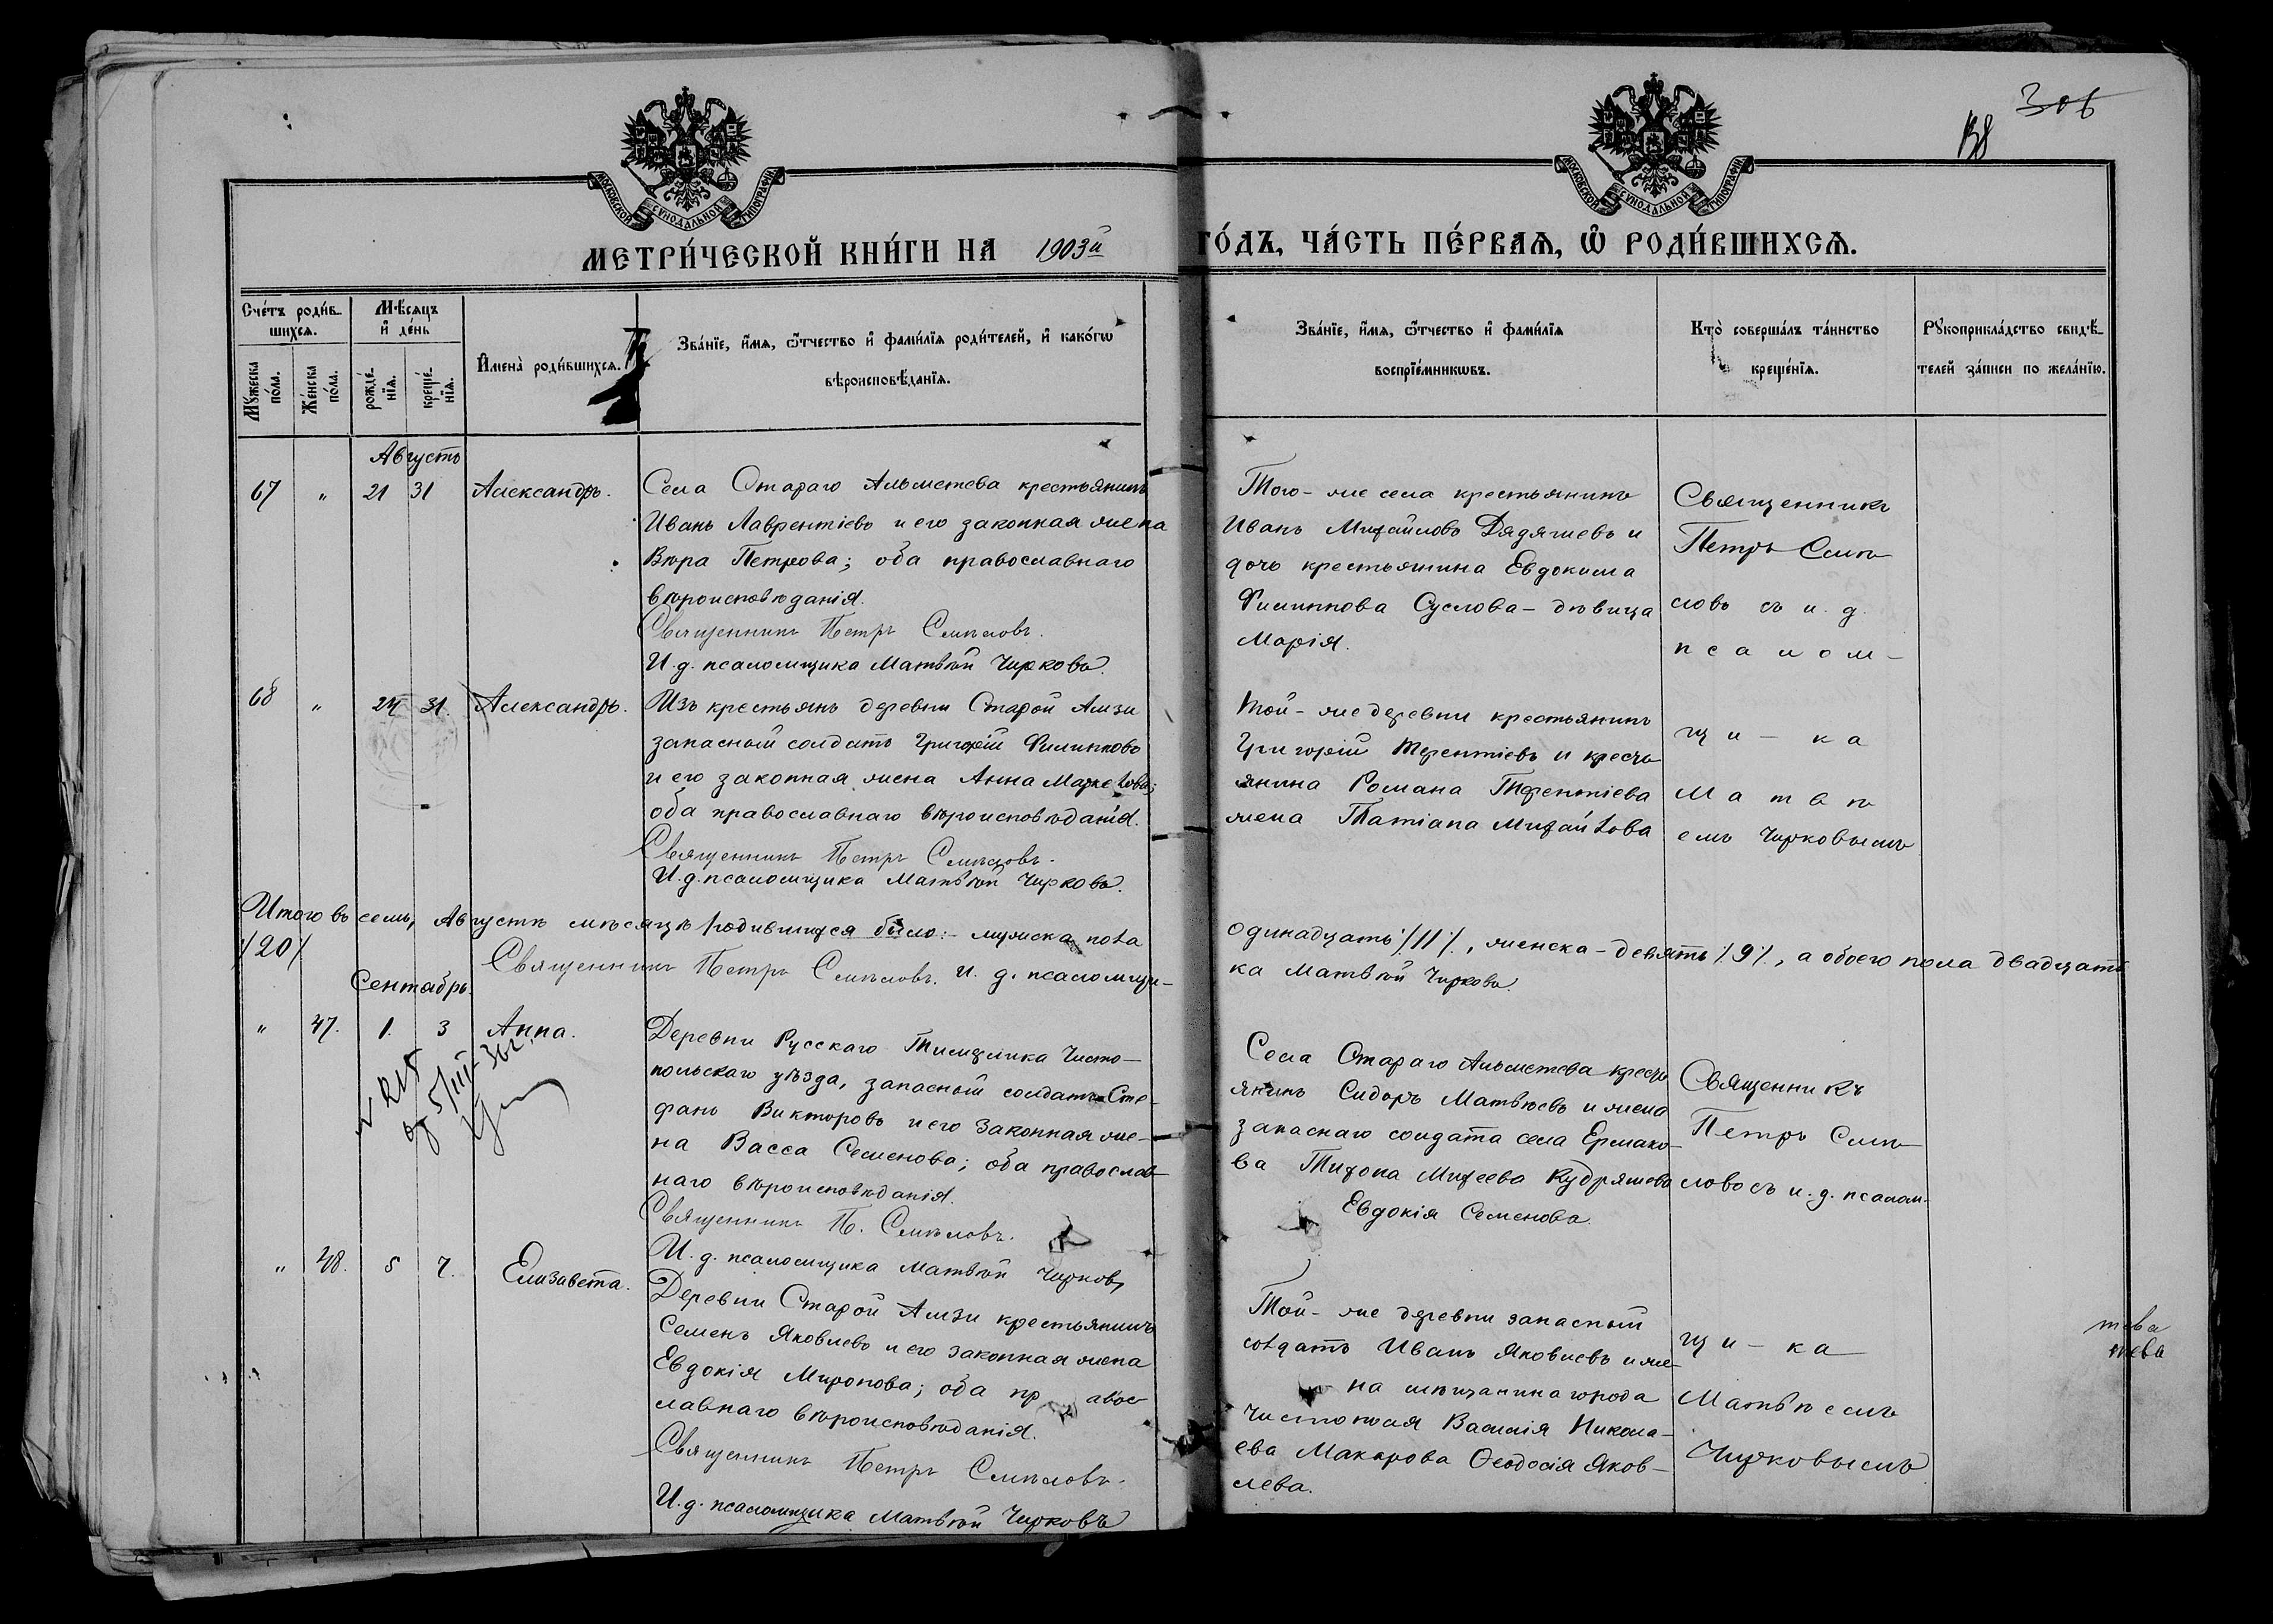 306
138
МОСКОВСКОЙ СѴНОДАЛЬНОЙ ТИПОГРАФІИ
МОСКОВСКОЙ СѴНОДАЛЬНОЙ ТИПОГРАФІИ
МЕТРИ́ЧЕСКОЙ КНИ́ГИ НА 1903й ГО́ДЪ, ЧА́СТЬ ПЕ́РВАѦ, Ѡ҆ РОДИ́ВШИХСѦ.
Сче́тъ роди́в-
шихсѧ.
Мꙋ́жеска по́ла.
Же́нска по́ла.
Мѣ́сѧцъ
и҆ де́нь
рожде́-
нїѧ.
креще́-
нїѧ.
И҆мена̀ роди́вшихсѧ.
Зва́нїе, и҆́мѧ, ѻ҆́тчество и҆ фами́лїѧ роди́телей, и҆ како́гѡ
вѣроисповѣ́данїѧ.
Зва́нїе, и҆́мѧ, ѻ҆́тчество и҆ фами́лїѧ
воспрїе́мникѡвъ.
Кто̀ соверша́лъ та́инство
креще́нїѧ.
Рꙋкоприкла́дство свидѣ́-
телей за́писи по жела́нїю.
Августъ
67 " 21 31 Александръ.
Села Стараго Альметева крестьянинъ
Иванъ Лаврентіевъ и его законная жена
Вѣра Петрова; оба православнаго
вѣроисповѣданія.
Священникъ Петръ Смѣловъ.
И. д. псаломщика Матвѣй Чирковъ.
Того-же села крестьянинъ
Иванъ Михайловъ Дядяшевъ и
дочь крестьянина Евдокима
Филиппова Суслова - дѣвица
Марія.
Священникъ
Петръ Смѣ-
ловъ съ и. д.
псалом-
68 " 24 31. Александръ.
Изъ крестьянъ деревни Старой Амзи
запасный солдатъ Григорій Филипповъ
и его законная жена Анна Маркелова;
оба православнаго вѣроисповѣданія.
Священникъ Петръ Смѣловъ.
И. д. псаломщика Матвѣй Чирковъ.
Той-же деревни крестьянинъ
Григорій Терентіевъ и кресть
янина Романа Терентіева
жена Татіана Михайлова
щи-ка
Матвѣ
емъ Чирковымъ
Итого въ семъ Августѣ мѣсяцѣ родившихся было:- мужска пола одинадцать /11/, женска - девять /9/, а обоего пола двадцать
/20/
Священникъ Петръ Смѣловъ. И. д. псаломщи-
ка Матвѣй Чирковъ.
Сентябрь.
" 47. 1. 3 Анна.
Деревни Русскаго Тимерлика Чисто-
польскаго уѣзда, запасный солдатъ Сте-
фанъ Викторовъ и его законная же-
на Васса Семенова; оба православ-
наго вѣроисповѣданія.
Священникъ П. Смѣловъ.
И. д. псаломщика Матвѣй Чирковъ
Села Стараго Альметева кресть
янинъ Сидоръ Матвѣевъ и жена
запаснаго солдата села Ермако-
ва Тихона Михеева Кудряшева
Евдокія Семенова.
Священникъ
Петръ Смѣ-
ловъ съ и. д. псалом-
" 48. 5 7. Елизавета.
Деревни Старой Амзи крестьянинъ
Семенъ Яковлевъ и его законная жена
Евдокія Миронова; оба пр авос-
лавнаго вѣроисповѣданія.
Священникъ Петръ Смѣловъ.
И. д. псаломщика Матвѣй Чирковъ
Той-же деревни запасный
солдатъ Иванъ Яковлевъ и же-
на мѣщанина города
Чистополя Василія Никола-
ева Макарова Ѳеодосія Яков-
лева.
щи-ка
Матвѣемъ
Чирковымъ